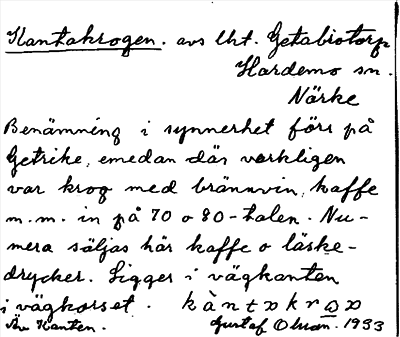 Kantakrogen. avs lht. Getabrotorp
Hardemo sn.
Närke
Benämning i synnerhet förr på
Getrike, emedan där verkligen
var krog med brännvin, kaffe
m.m. in på 70 o 80-talen. Nu-
mera säljas här kaffe o läske-
drycker. Ligger i vägkanten
i vägkorset. kàntxkrωx
Äv. Kanten. Gustaf Olsson. 1933